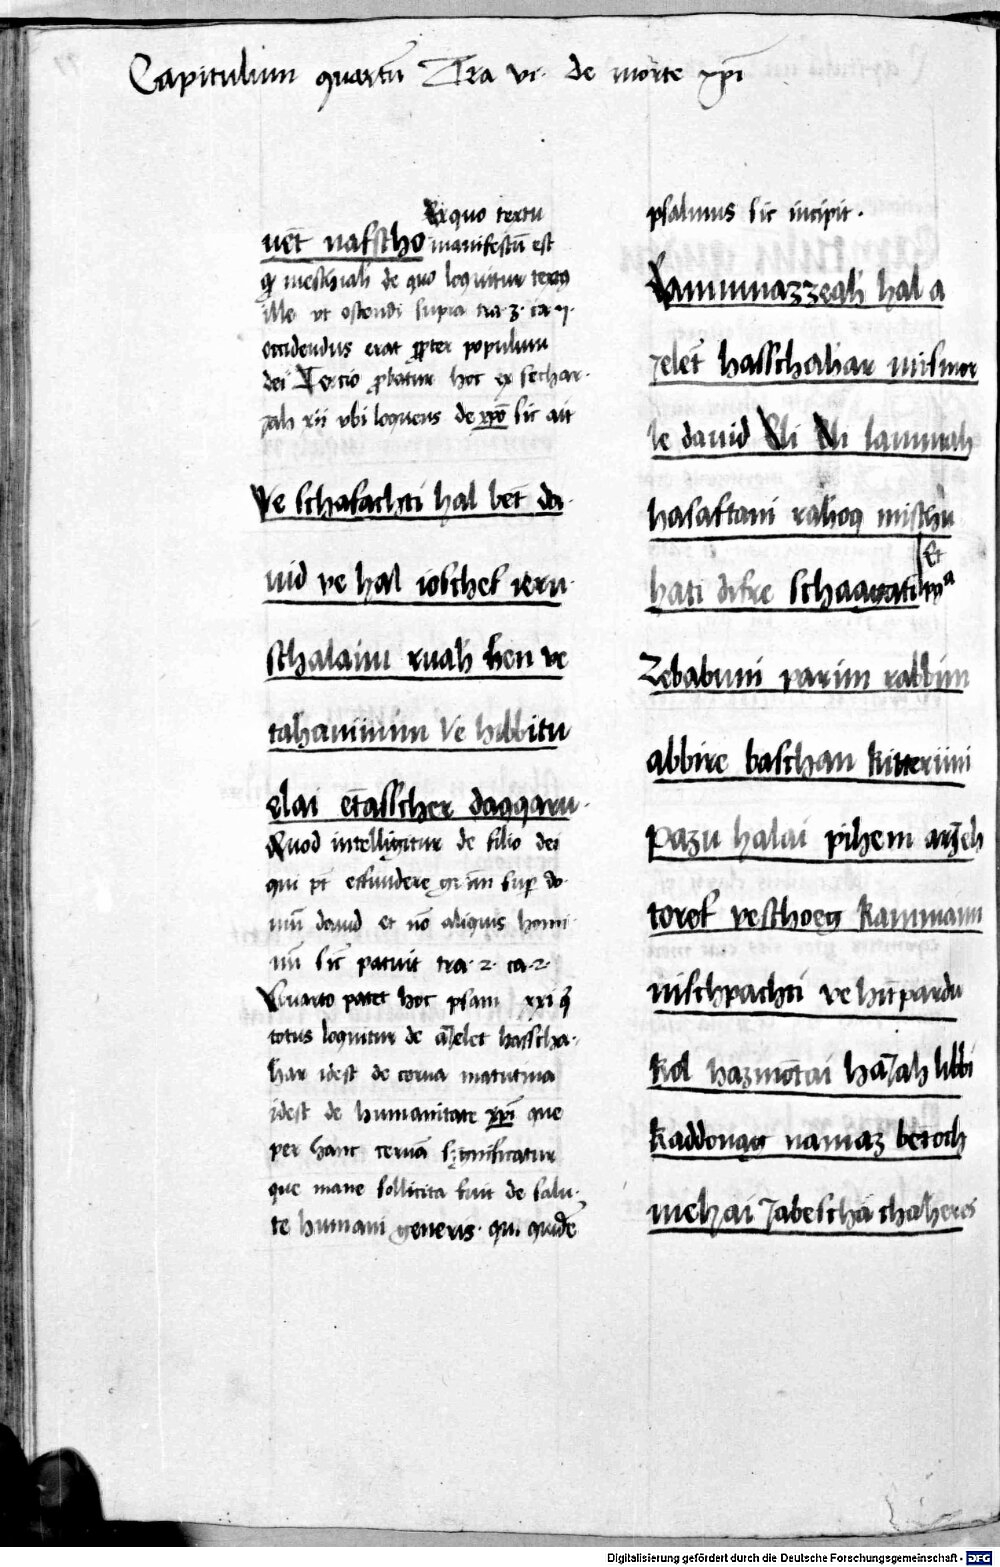 Capitulum quartũ Tra vi. de morte xp̄i
Ex quo textu
uet̄ nafscho manifestũ est
qꝫ meschiah de quo loquitur textꝰ
ille vt ostendi supra tra. 3. ca. 7.
occidendus erat ꝓpter populum
dei Tercio ꝓbatur hoc ex sechar-
iah xii vbi loquens de xp̄o sic ait
Ve schafachti hal bet̄ da-
uid ve hal ioschef ieru-
schalaim ruah hen ve
tahanunim Ve hibbitu
elai et̄ asscher daqqaru.
Quod intelligitur de filio dei
qui pt̄ effundere gr̄am suꝑ do-
mũ dauid et nõ aliquis homi-
nũ sic̄ patuit tra. 2. ca. 2.
Quarto patet hoc psam xxi qꝫ
totus loquitur de aielet hasscha-
har idest de cerua matutina
idest de humanitate xp̄i que
per hanc ceruã significatur
que mane sollicita fuit de salu-
te humani generis. qui quidẽ
psalmus sic incipit.
Lammnazzeah hal a
ielet̄ hasschahar mismor
le dauid Eli Eli lammah
hasaftani rahoq mischu
hati difre schaagati Et
Zebabuni parim rabbim
abbire baschan kitteruni
Pazu halai pihem arieh
toref veschoeg kammaim
nischpachti ve hitpardu
kol hazmotai haiah libbi
kaddonag namaz betoch
mehai Jabesch cha cheres